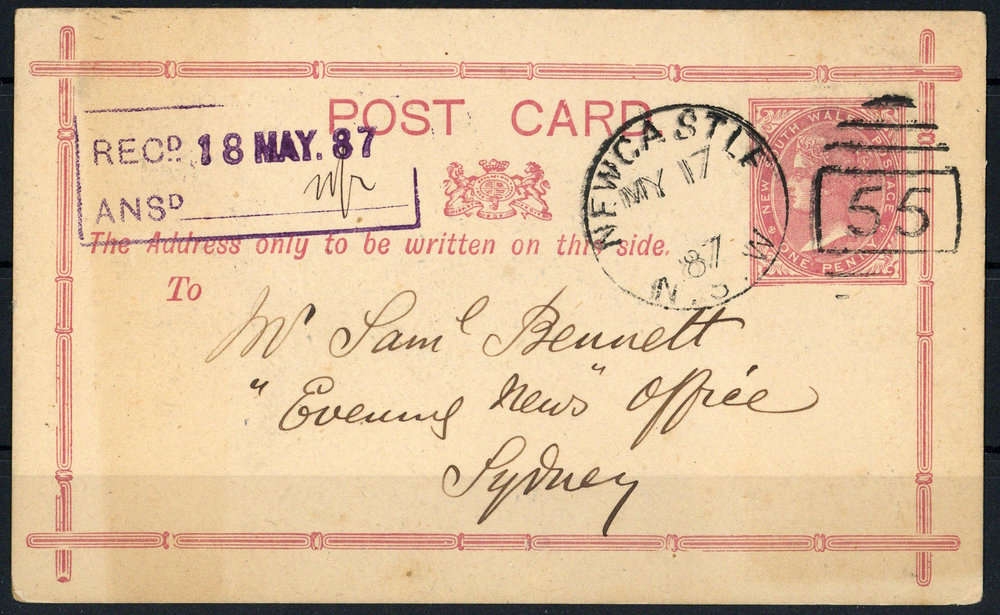 POST CARD
RECD. 18 MAY. 87
ANSD
NEWCASTLE
MY 17
87
N.S.W
NEW SOUTH WALES POSTAGE
ONE PENNY
55
The Address only to be written on this side.
To
Mr Saml Bennett
"Evening News" Office
Sydney